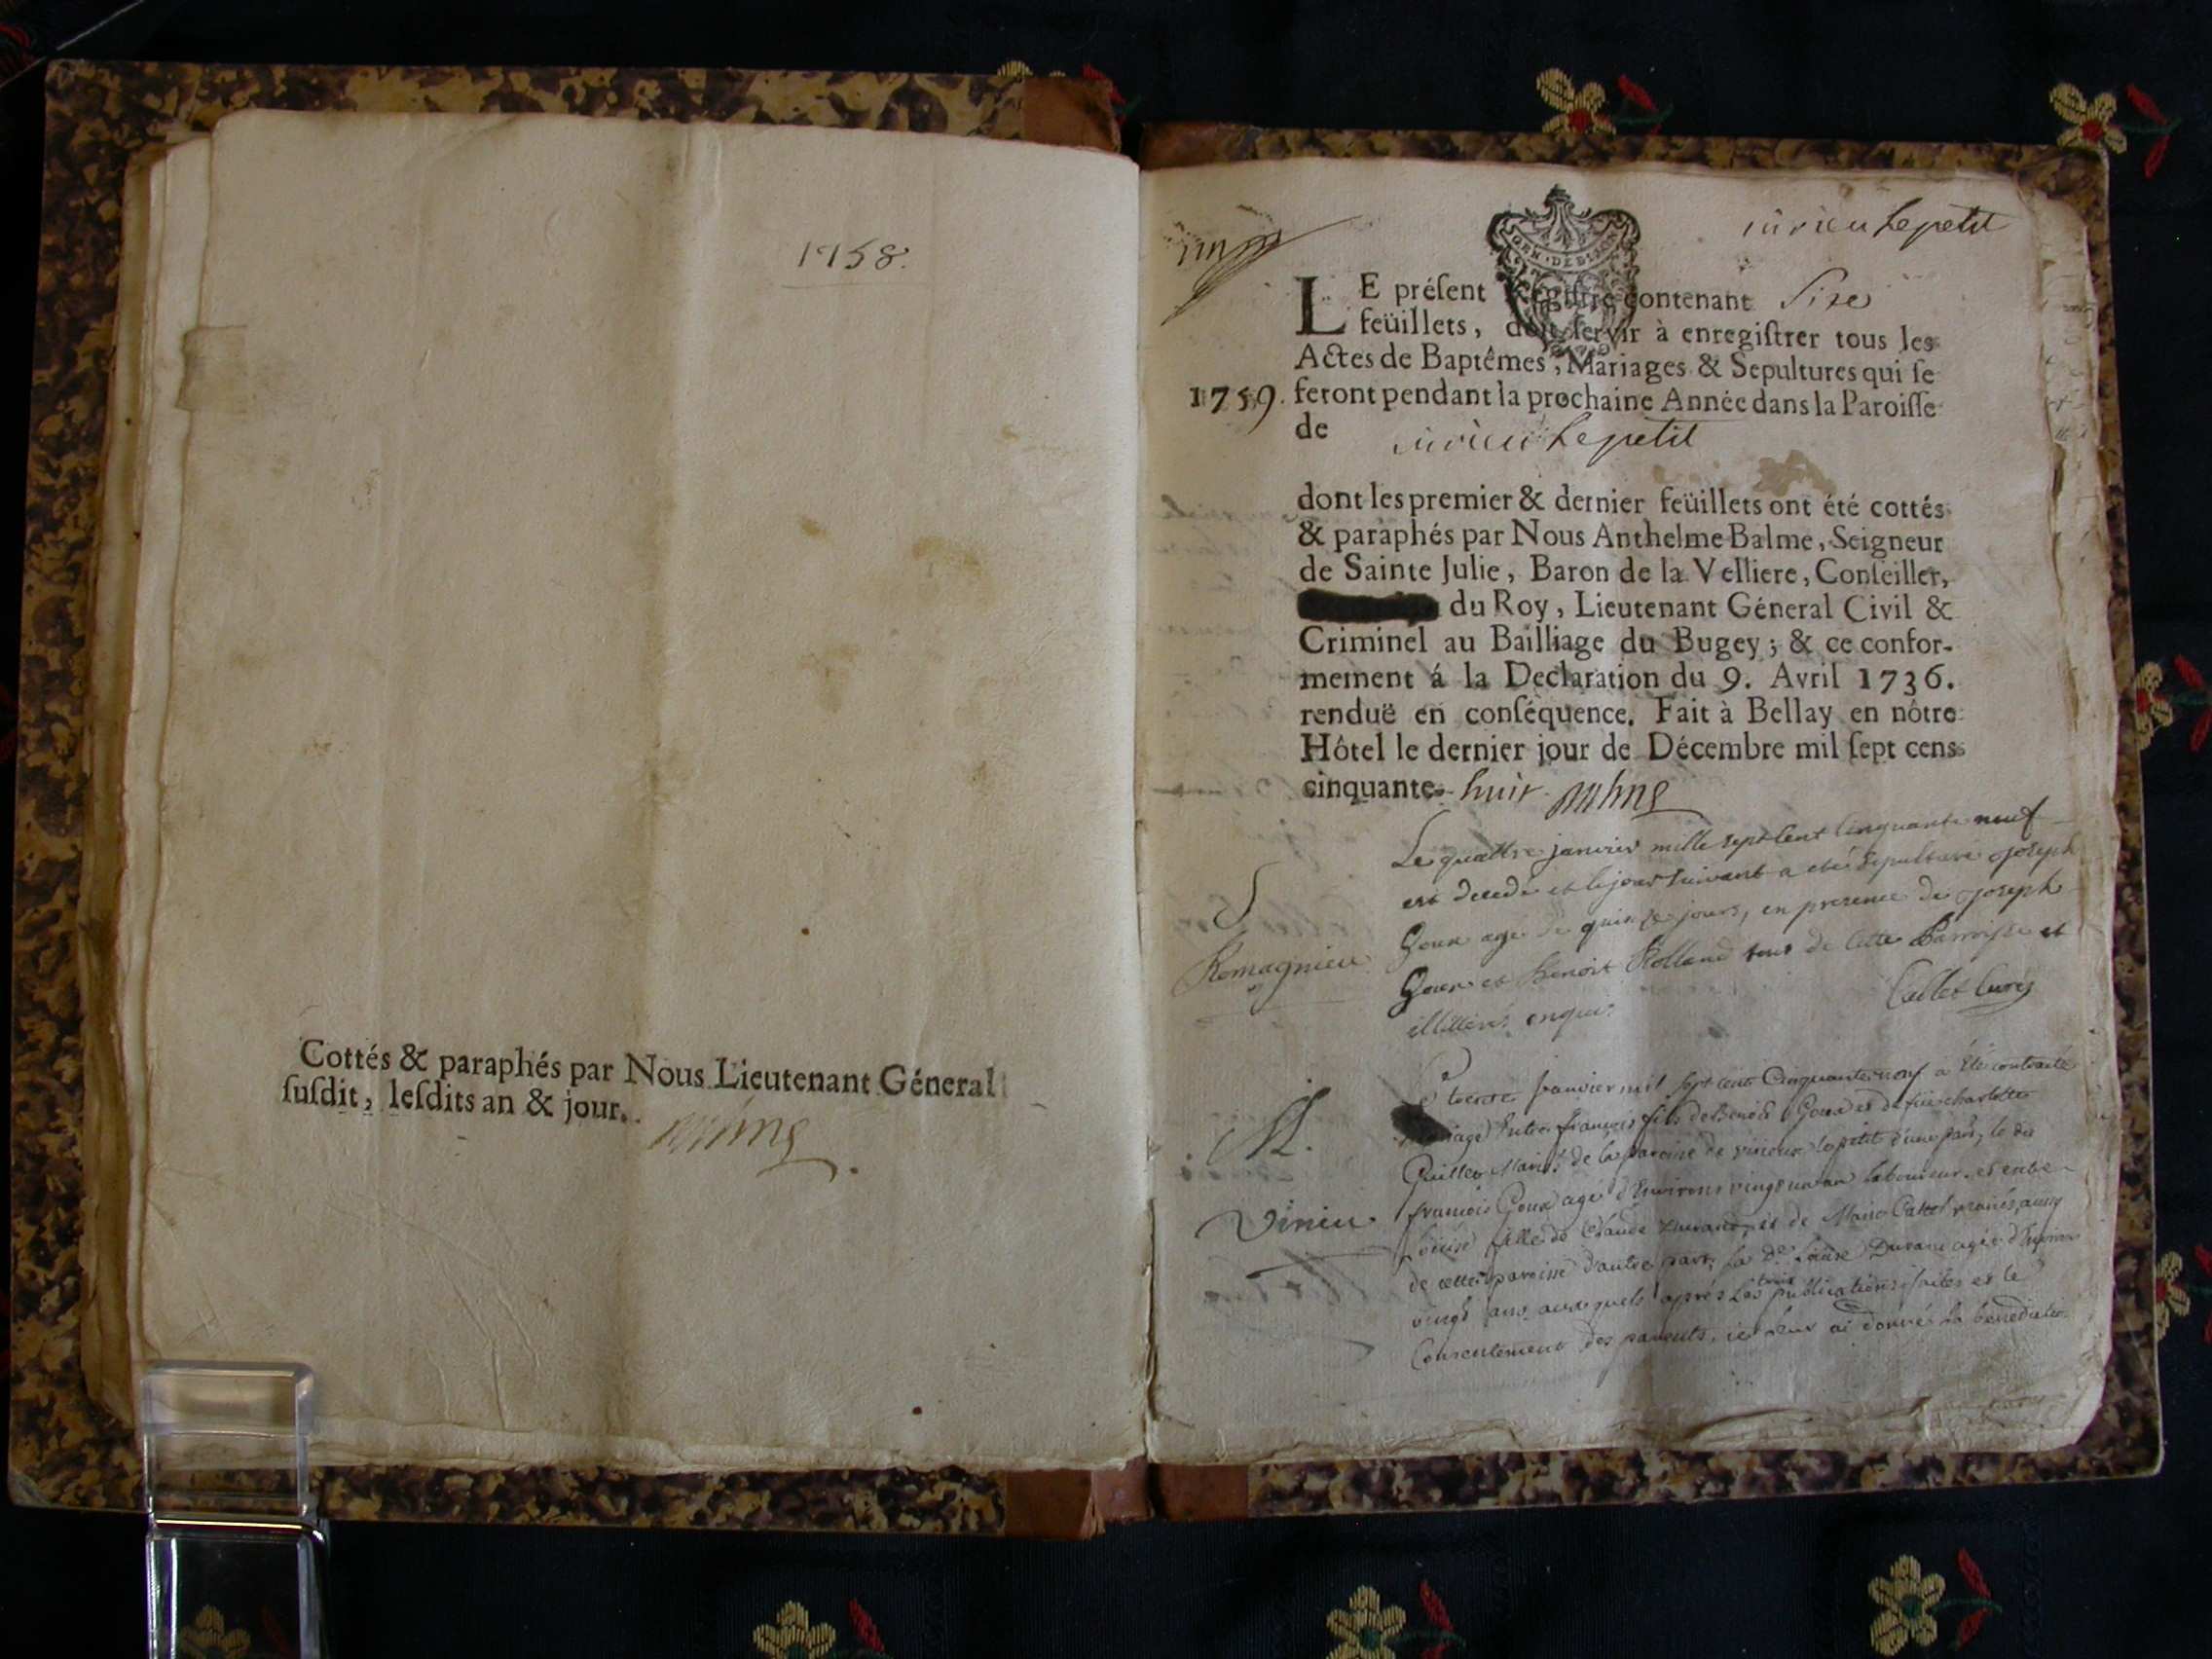 1758.
Cottés & paraphés par Nous Lieutenant Géneral
ſuſdit, leſdits an & jour.
virieu Le petit
GEN · DE DIJON
LE préſent Regiſtre contenant Sixe
feüillets, doit ſervir à enregiſtrer tous les
Actes de Baptêmes, Mariages & Sepultures qui ſe
1759. feront pendant la prochaine Année dans la Paroiſſe
de virieu Le petit
dont les premier & dernier feüillets ont été cottés
& paraphés par Nous Anthelme Balme, Seigneur
de Sainte Julie, Baron de la Velliere, Conſeiller,
du Roy, Lieutenant Géneral Civil &
Criminel au Bailliage du Bugey ; & ce confor-
mement á la Declaration du 9. Avril 1736.
renduë en conſéquence. Fait à Bellay en nôtre
Hôtel le dernier jour de Décembre mil ſept cens
cinquante- huit
Le quattre janvier mille sept cent cinquante neuf
est decedé et le jour suivant a eté sepulturé joseph
S
Goux agé de quinze jours, en presence de joseph
Romagnieu
Goux et Benoit Rolland tous de cette Parroisse et
illitteré enquis
Callet Curé
Le trente Janvier mil sept cent Cinquante neuf a Eté contracté
M.
Mariage Entre françois fils de Benoit Goux et de füe charlotte
Guillet Mariés de la paroisse de virieux le petit d'une part, le dit
Virieu
francois Goux agé d'Environ vingt un an laboureur. et entre
Loüise fille de Claude Durand, et de Marie Callet mariés aussy
de cette paroisse d'autre part, la de. Loüise Durand agée d'Environ
vingt ans auxquels aprés les trois publications faites et le
Consentement des parents, ie leur ai donné la benedictio